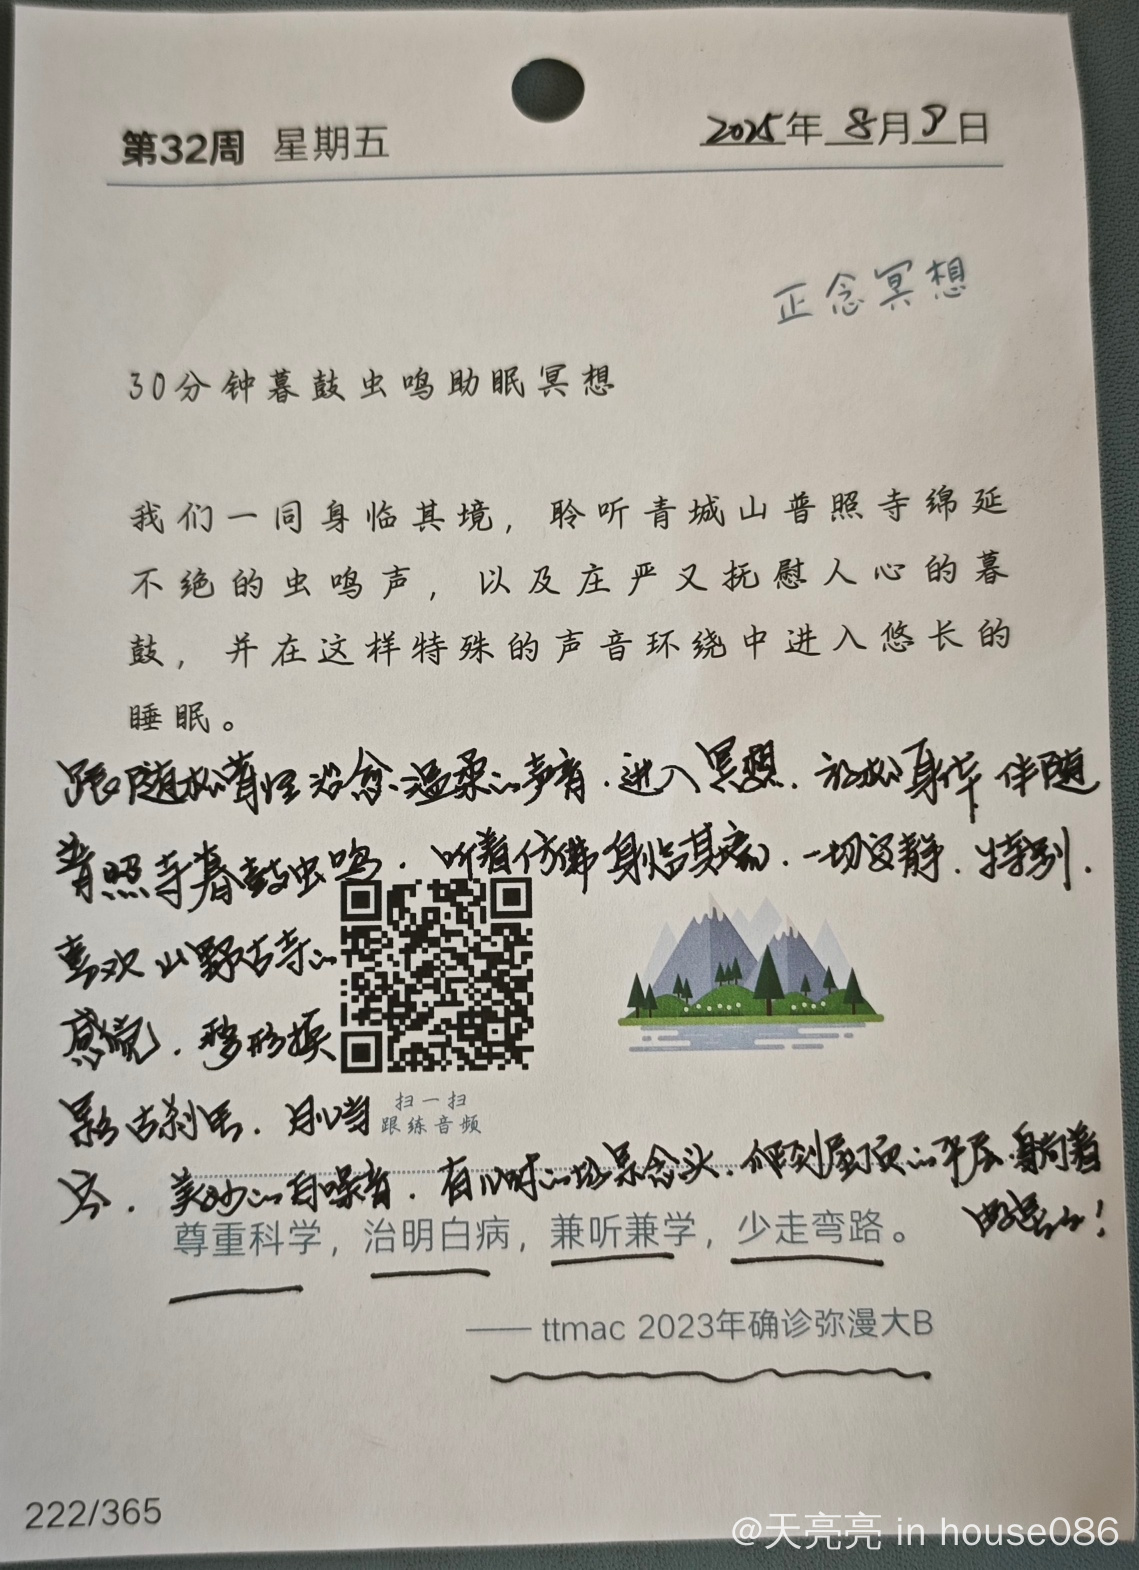 第32周 星期五 2025年8月8日
正念冥想
30分钟暮鼓虫鸣助眠冥想
我们一同身临其境，聆听青城山普照寺绵延
不绝的虫鸣声，以及庄严又抚慰人心的暮
鼓，并在这样特殊的声音环绕中进入悠长的
睡眠。
跟随 温柔的声音.进入冥想.放松身体 伴随
普照寺暮鼓虫鸣.听着仿佛身临其境.一切安静.特别.
喜欢山野古寺的
感觉.移形换
影古刹 .
.美妙的白噪音.有 时的 念头.爬到屋顶的平层.躺着
扫一扫
跟练音频
尊重科学，治明白病，兼听兼学，少走弯路。
—— ttmac 2023年确诊弥漫大B
222/365
@天亮亮 in house086